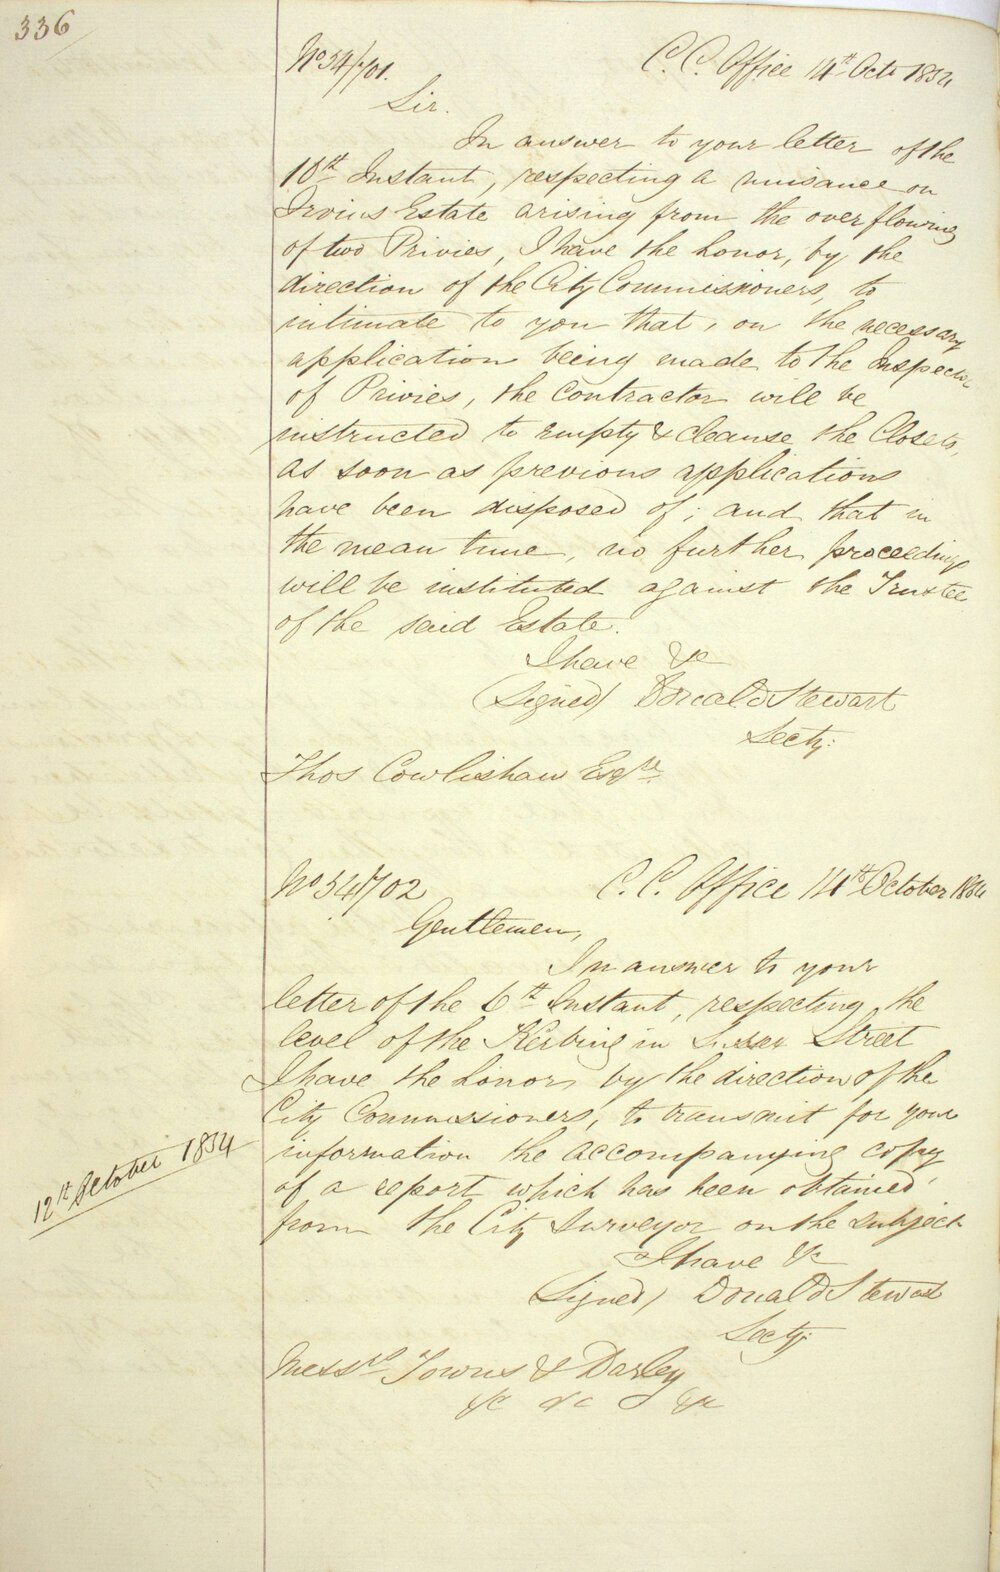 336
No 54/701. C. C. Office 14th Octr 1854
Sir.
In answer to your letter of the
10th Instant, respecting a nuisance on
Irvins Estate arising from the overflowing
of two Privies, I have the honor, by the
direction of the City Commissioners, to
intimate to you that, on the necessary
application being made to the Inspector
of Privies, the Contractor will be
instructed to empty & cleanse the Closets,
as soon as previous applications
have been disposed of; and that in
the mean time, no further proceedings
will be instituted against the Trustee
of the said Estate.
I have &c
(Signed) Donald Stewart
Secty:
Thos Cowlishaw Esqre
No 54/702 C. C. Office 14th October 1854
Gentlemen,
In answer to your
letter of the 6th Instant, respecting the
level of the Kerbing in Sussex Street
I have the honor, by the direction of the
City Commissioners, to transmit for your
information the accompanying copy
12th October 1854
of a report which has been obtained
from the City Surveyor on the subject
I have &c
(Signed) Donald Stewart
Secty:
Messrs Towns & Darley
&c &c &c